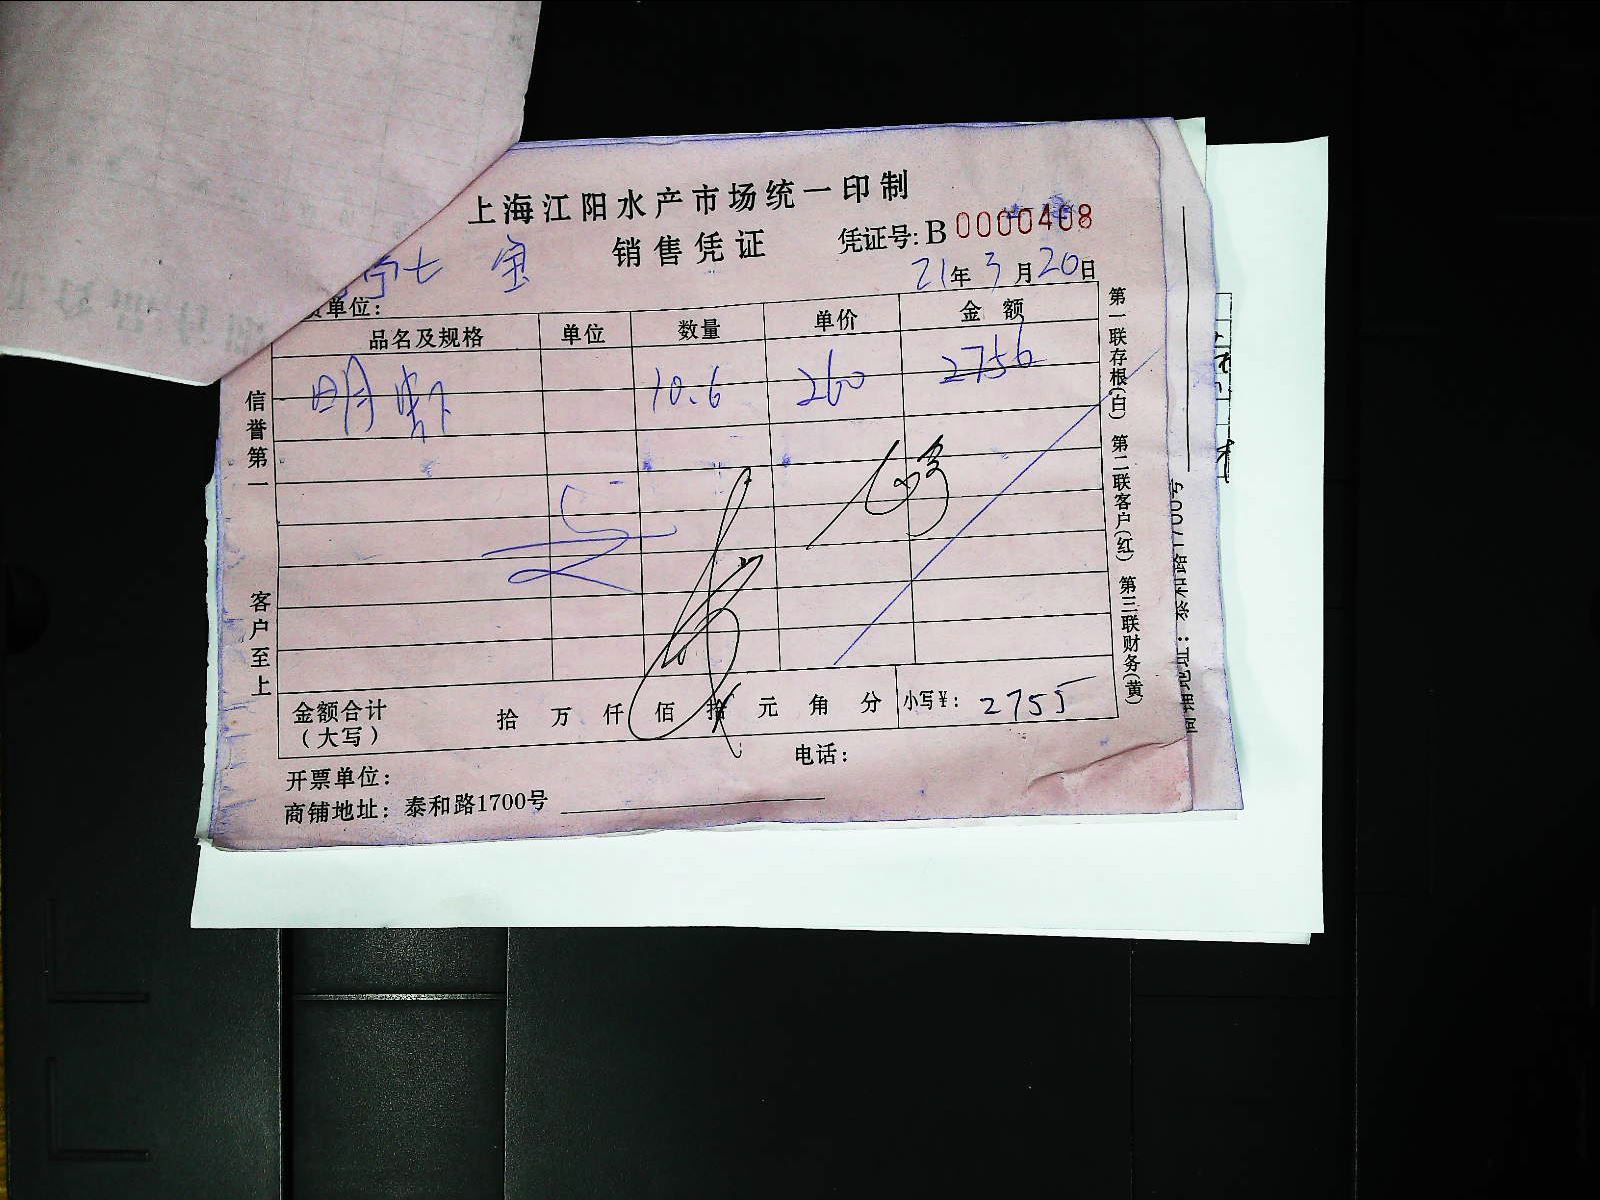 上海江阳水产市场统一印制
销售凭证 凭证号: B 0000408
七 宝 21年3月20日
单位:
品名及规格 单位 数量 单价 金额
明虾 10.6 260 2756
信誉第一
客户至上
第一联存根(白) 第二联客户(红) 第三联财务(黄)
金额合计 拾 万 仟 佰 拾 元 角 分 小写¥: 2755
(大写)
开票单位: 电话:
商铺地址: 泰和路1700号